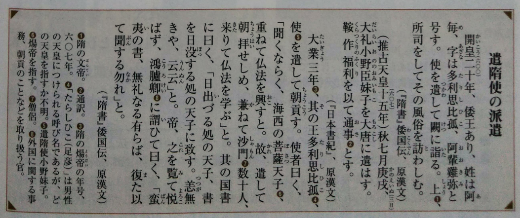 遣隋使の派遣
開皇二十年、倭王あり、姓は阿
毎、字は多利思比孤、阿輩雞弥と
号す。使を遣して闕に詣る。上❶、
所司をしてその風俗を訪わしむ。
(『隋書』倭国伝、原漢文)
(推古天皇十五年)秋七月庚戌、
大礼小野臣妹子を大唐に遣はす。
鞍作福利を以て通事❷とす。
(『日本書紀』、原漢文)
大業三年❸、其の王多利思比孤❹、
使❺を遣して朝貢す。使者曰く、
「聞くならく、海西の菩薩天子❻、
重ねて仏法を興すと。故、遣して
朝拝せしめ、兼ねて沙門❼数十人、
来りて仏法を学ぶ」と。其の国書
に曰く、「日出づる処の天子、書
を日没する処の天子に致す。恙無
きや、云云」と。帝、之を覧て悦
ばず、鴻臚卿❽に謂ひて曰く、「蛮
夷の書、無礼なる有らば、復た以
て聞する勿れ」と。
(『隋書』倭国伝、原漢文)
❶隋の文帝。❷通訳。❸隋の煬帝の年号、
六〇七年。❹たらしひこ(足彦)は男性
の天皇につけられる呼び名であるが、ど
の天皇を指すか不明。❺遣隋使小野妹子。
❻煬帝を指す。❼僧侶。❽外国に関する事
務、朝貢のことなどを取り扱う官。